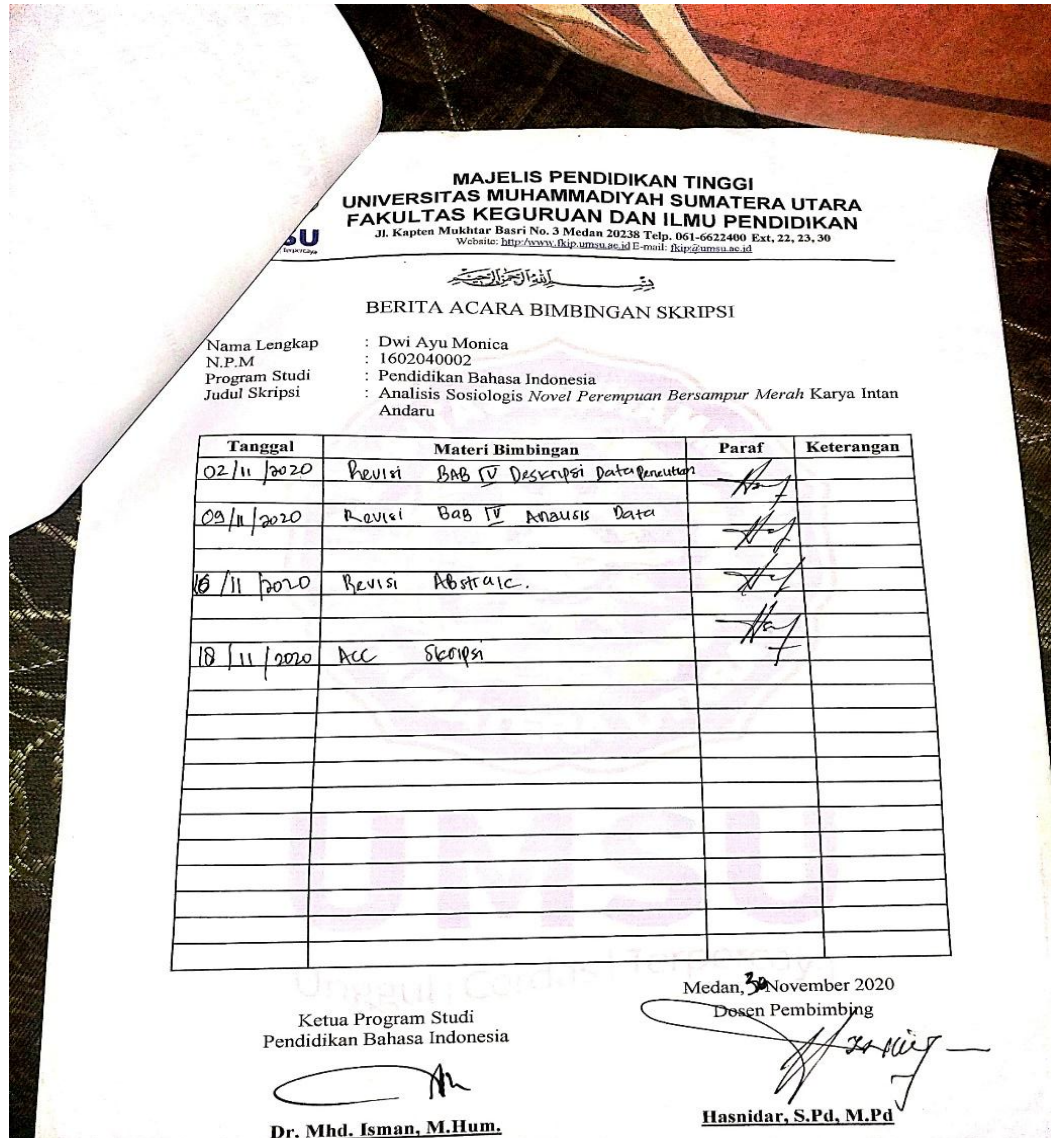 MAJELIS PENDIDIKAN TINGGI
UNIVERSITAS MUHAMMADIYAH SUMATERA UTARA
FAKULTAS KEGURUAN DAN ILMU PENDIDIKAN
Jl. Kapten Mukhtar Basri No. 3 Medan 20238 Telp. 061-6622400 Ext, 22, 23, 30
Website: http:/www.fkip.umsu.ac.id E-mail: fkip@umsu.ac.id
SU
Terpercaya
BERITA ACARA BIMBINGAN SKRIPSI
Nama Lengkap : Dwi Ayu Monica
N.P.M : 1602040002
Program Studi : Pendidikan Bahasa Indonesia
Judul Skripsi : Analisis Sosiologis Novel Perempuan Bersampur Merah Karya Intan
Andaru
Tanggal Materi Bimbingan Paraf Keterangan
02/11/2020 Revisi BAB IV Deskripsi Data Penelitian
09/11/2020 Revisi Bab IV Analisis Data
16/11/2020 Revisi Abstrak.
18/11/2020 ACC Skripsi
UMSU
Unggul | Cerdas | Terpercaya
Medan, 30 November 2020
Ketua Program Studi Dosen Pembimbing
Pendidikan Bahasa Indonesia
Dr. Mhd. Isman, M.Hum. Hasnidar, S.Pd, M.Pd